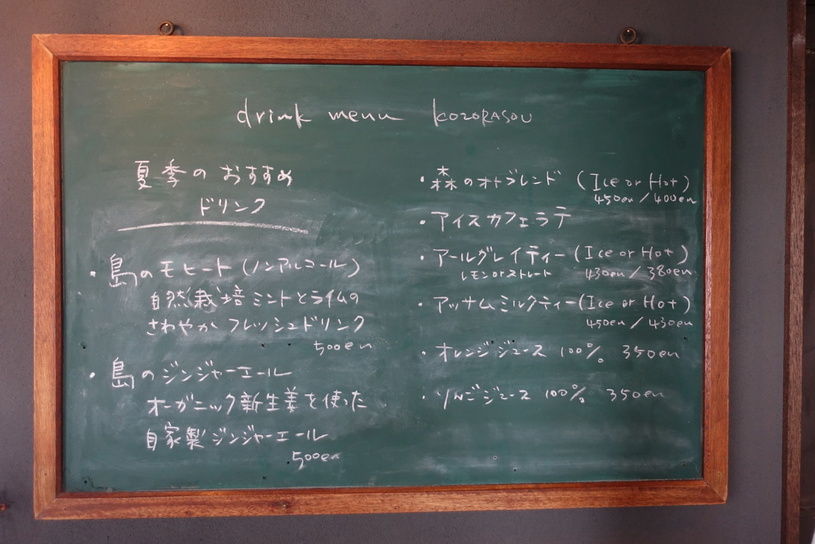 drink menu KOZORASOU
夏季のおすすめ
ドリンク
・島のモヒート(ノンアルコール)
自然栽培ミントとライムの
さわやかフレッシュドリンク
500en
・島のジンジャーエール
オーガニック新生姜を使った
自家製ジンジャーエール
500en
・森のオトブレンド (Ice or Hot)
450en/400en
・アイスカフェラテ
・アールグレイティー(Ice or Hot)
レモンorストレート 430en/380en
・アッサムミルクティー(Ice or Hot)
450en/430en
・オレンジジュース 100% 350en
・リンゴジュース 100% 350en